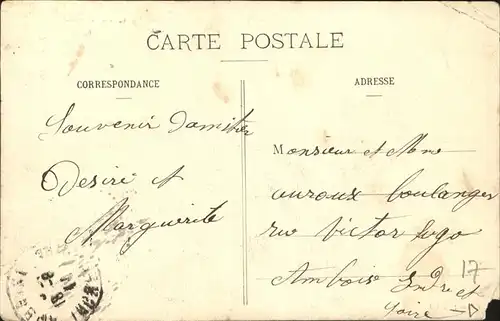 CARTE POSTALE
CORRESPONDANCE
ADRESSE
Souvenir damitié
Desire et
Marguerite
Monsieur et Mme
auroux boulanger
rue Victor hugo
Amboise Indre et
Loire
17